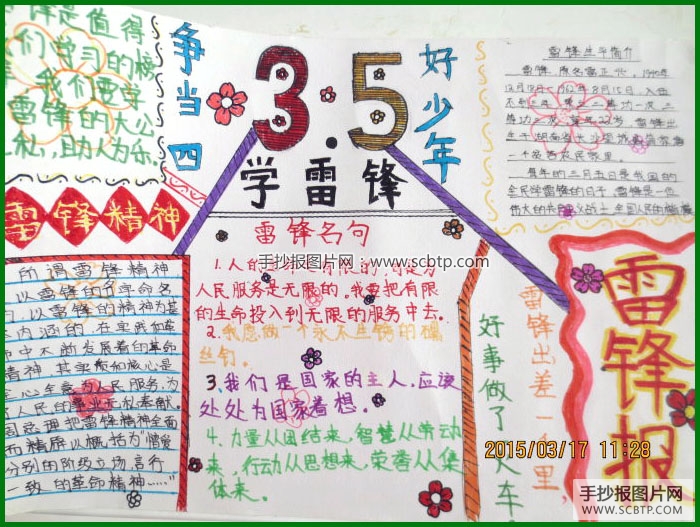 是值得
们学习的榜
我们要学
雷锋的大公
无私,助人为乐。
争当四
好少年
3.5
学雷锋
雷锋生平简介
雷锋,原名雷正兴,1940年
12月18日
1962年8月15日,
一个贫苦农民家里。
每年的三月五日是我国的
全民学雷锋的日子,雷锋是一位
伟大的共产主义战士,全国人民的楷模
雷锋精神
所谓雷锋精神
以雷锋的名字命名
以雷锋的精神为基
本内涵的,在实践和革
命中不断发展着的革命
精神,其实质和核心是
全心全意为人民服务,为
了人民的事业无私奉献。
周总理把雷锋精神全面
而精辟以概括为“憎爱
分明的阶级立场,言行
一致的革命精神……”
雷锋名句
1.人的
人民服务是无限的。我要把有限
的生命投入到无限的服务中去。
2.我愿做一个永不生锈的螺
丝钉。
3.我们是国家的主人,应该
处处为国家着想。
4.力量从团结来,智慧从劳动
来,行动从思想来,荣誉从集
体来。
雷锋出差一千里,
好事做了一火车
雷锋报
手抄报图片网 www.scbtp.com
2015/03/17 11:28
手抄报图片网
WWW.SCBTP.COM